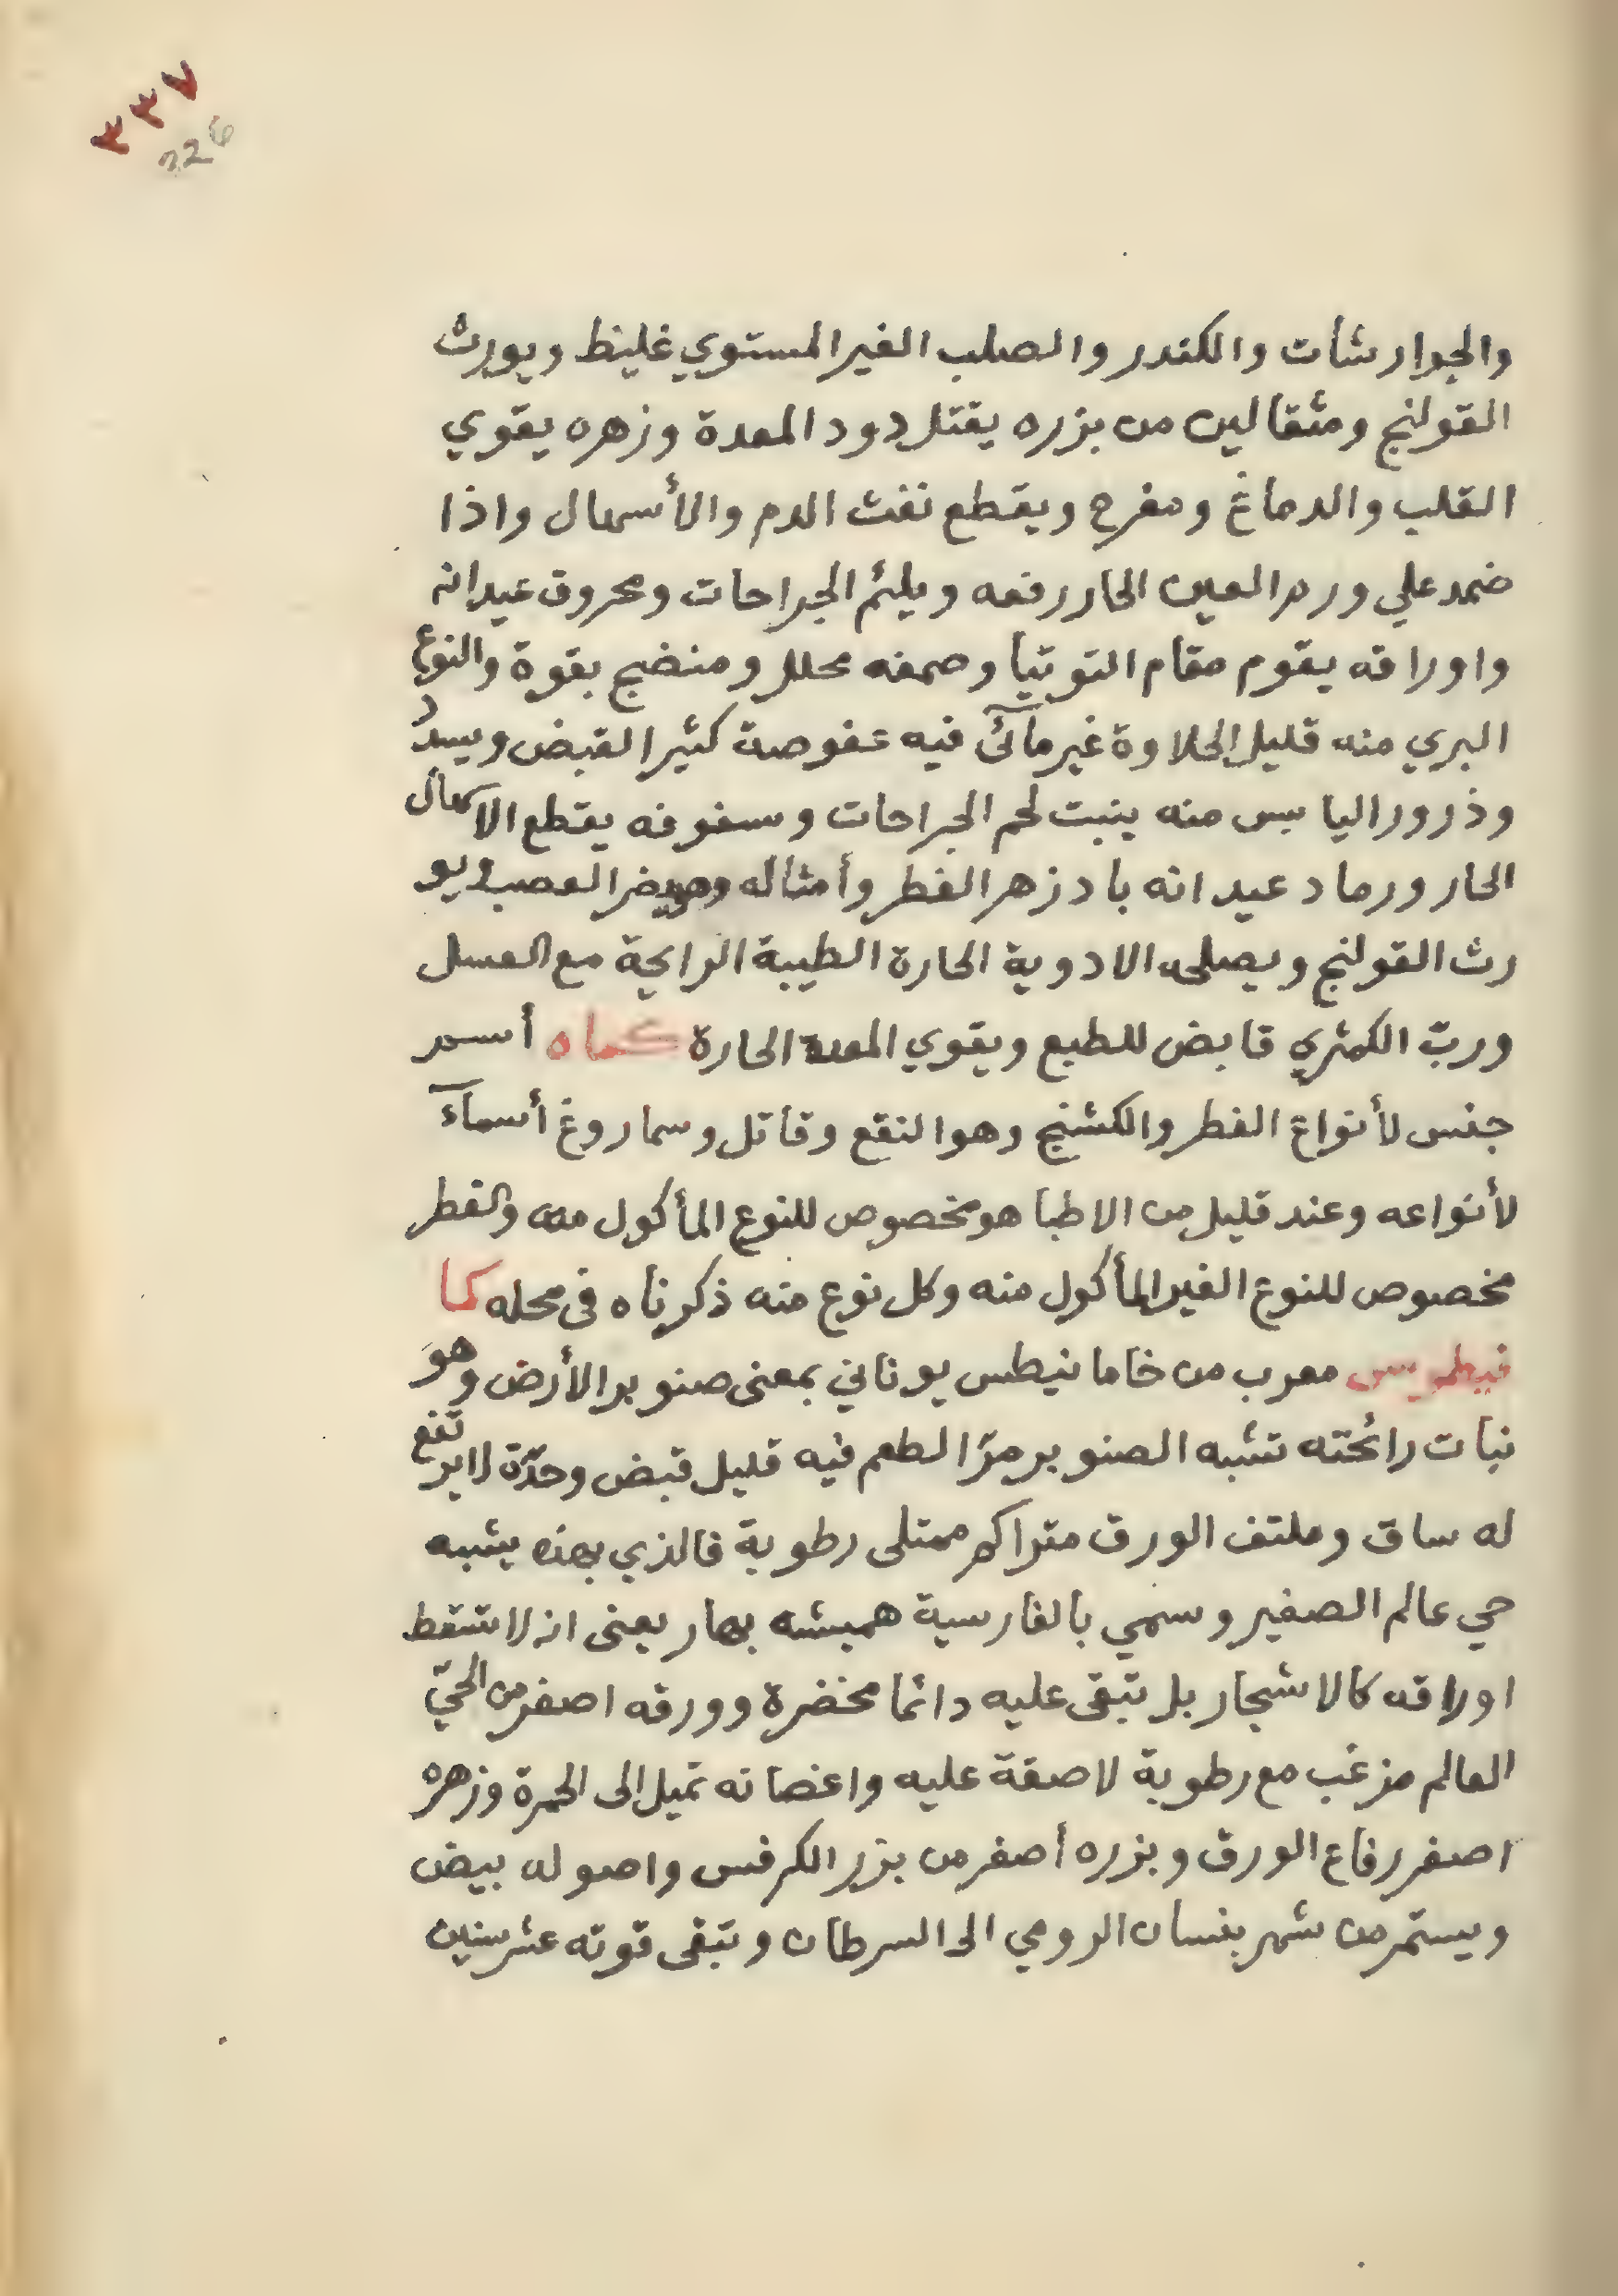 ٣٣٧
226
والجوارشات والكندر والصلب الغير المستوي غليظ ويورث
القولنج ومثقالين من بزره يقتل دود المعدة وزهره يقوي
القلب والدماغ ومفرح ويقطع نفث الدم والأسهال واذا
ضمد علي ورم العين الحار رفعه ويلئم الجراحات ومحروق عيدانه
واوراقه يقوم مقام التوتيا وصمغه محلل ومنضج بقوة والنوع
البري منه قليل الحلاوة غير مآئ فيه عفوصة كثير القبض ويسدد
وذرور اليابس منه ينبت لحم الجراحات وسفوفه يقطع الاسهال
الحار ورماد عيدانه بادزهر الفطر وأمثاله وهو يضر العصب ويو
رث القولنج ويصلحه الادوية الحارة الطيبة الرايحة مع العسل
وربّ الكمثري قابض للطبع ويقوي المعدة الحارة كماه أسمر
جنس لأنواع الفطر والكشنج وهو النقع وقاتل وسماروغ أسمآء
لأنواعه وعند قليل من الاطبا هو مخصوص للنوع المأكول منه والفطر
مخصوص للنوع الغير المأكول منه وكل نوع منه ذكرناه في محله كما
فيطويس معرب من خاما نيطس يوناني بمعنى صنوبر الأرض وهو
نبات رائحته تشبه الصنوبر مرّ الطعم فيه قليل قبض وحدّة لا يرتفع
له ساق وملتف الورق متراكم ممتلى رطوبة فالذي بهذه يشبه
حي عالم الصغير وسمي بالفارسية هميشه بهار يعنى انه لا تسقط
اوراقه كالاشجار بل تبقى عليه دائما مخضرة وورقه اصفر من الحيّ
العالم مزغب مع رطوبة لاصقة عليه واغصانه تميل الى الحمرة وزهره
اصفر رفاع الورق وبزره أصغر من بزر الكرفس واصوله بيض
ويستمر من شهر بنسان الرومي الى السرطان وتبقى قوته عشر سنين